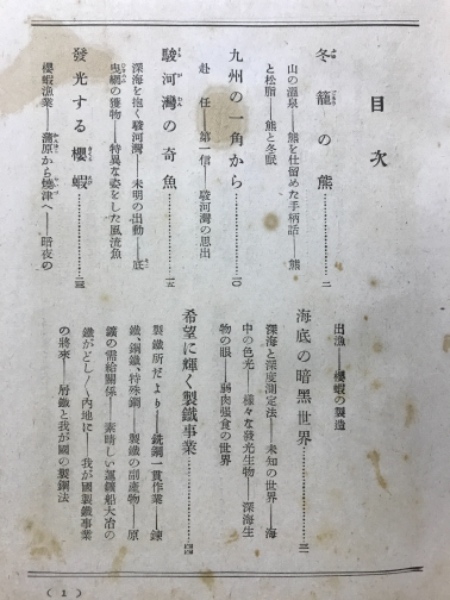 目次
冬籠の熊……二
山の溫泉――熊を仕留めた手柄話――熊
と松脂――熊と冬眠
九州の一角から……一〇
赴任――第一信――駿河灣の思出
駿河灣の奇魚……一五
深海を抱く駿河灣――未明の出動――底
曳網の獲物――特異な姿をした風流魚
發光する櫻蝦……二三
櫻蝦漁業――蒲原から燒津へ――暗夜の
出漁――櫻蝦の製造
海底の暗黑世界……三一
深海と深度測定法――未知の世界――海
中の色光――樣々な發光生物――深海生
物の眼――弱肉强食の世界
希望に輝く製鐵事業……四四
製鐵所だより――銑鋼一貫作業――鍊
鐵、鋼鐵、特殊鋼――製鐵の副產物――原
鑛の需給關係――素晴しい運鑛船大冶の
鐵がどし〱內地に――我が國製鐵事業
の將來――屑鐵と我が國の製鋼法
(1)